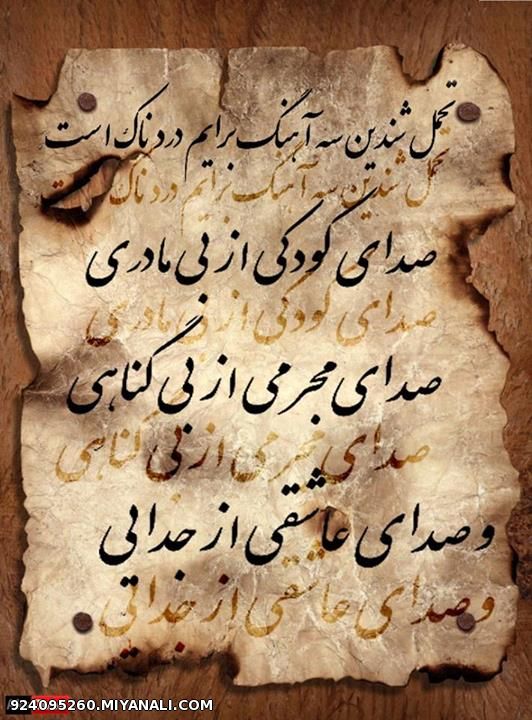 تحمل شندین سه آهنگ برایم دردناک است
تحمل شندین سه آهنگ برایم دردناک است
صدای کودکی از بی مادری
صدای کودکی از بی مادری
صدای مجرمی از بی گناهی
صدای مجرمی از بی گناهی
و صدای عاشقی از جدایی
و صدای عاشقی از جدایی
924095260.MIYANALI.COM